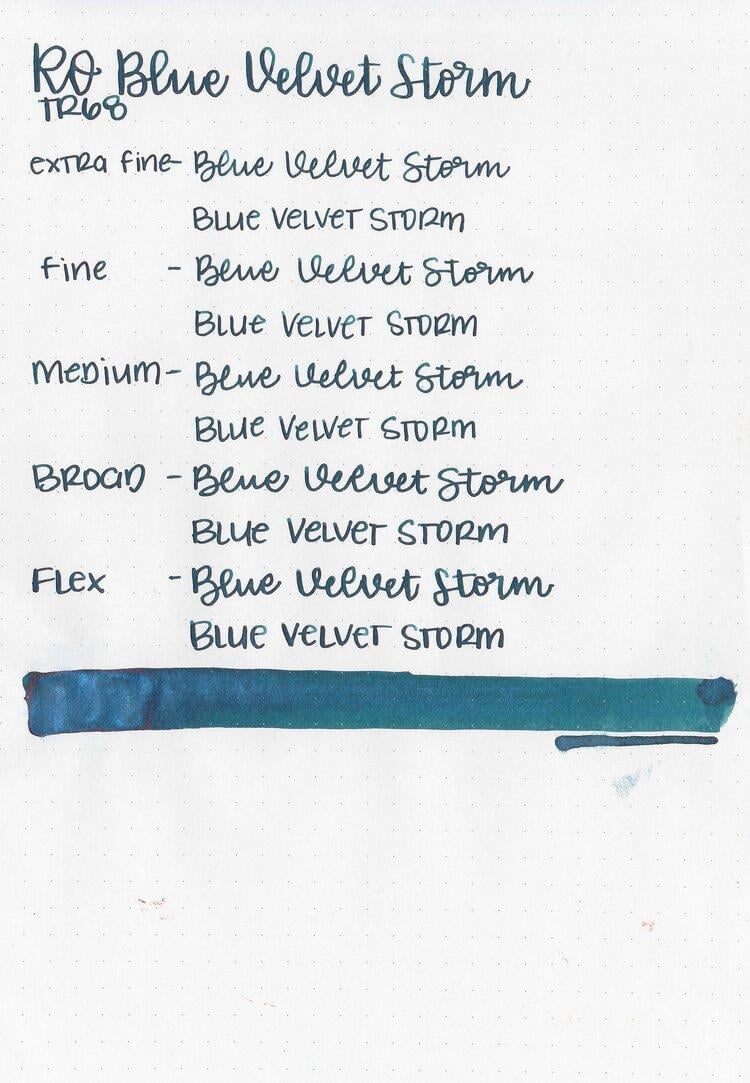 RO Blue Velvet Storm
TR68
extra fine - Blue Velvet Storm
BLUE VELVET STORM
fine - Blue Velvet Storm
BLUE VELVET STORM
Medium - Blue Velvet Storm
BLUE VELVET STORM
BROAD - Blue Velvet Storm
BLUE VELVET STORM
FLEX - Blue Velvet Storm
BLUE VELVET STORM